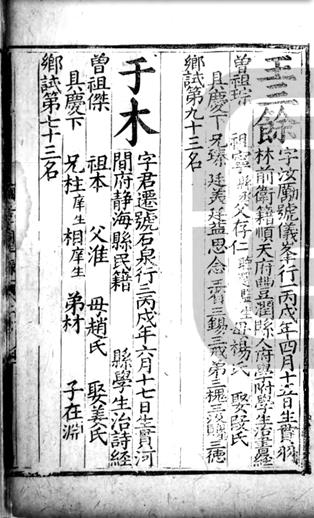 王三餘 字汝勵號儀峯行二丙戌年四月十五日生貫羽
林前衛籍順天府豐潤縣人府學附學生治禮經
曾祖琮 祖寧 父存仁 母楊氏 娶段氏
具慶下 兄臻 思念 三錫 三戒 弟三槐 三德
鄉試第九十三名
于木 字君遷號石泉行三丙戌年六月十七日生貫河
間府静海縣民籍 縣學生治詩經
曾祖傑 祖本 父淮 母趙氏 娶姜氏
具慶下 兄柱庠生 相庠生 弟材 子在淵
鄉試第七十三名